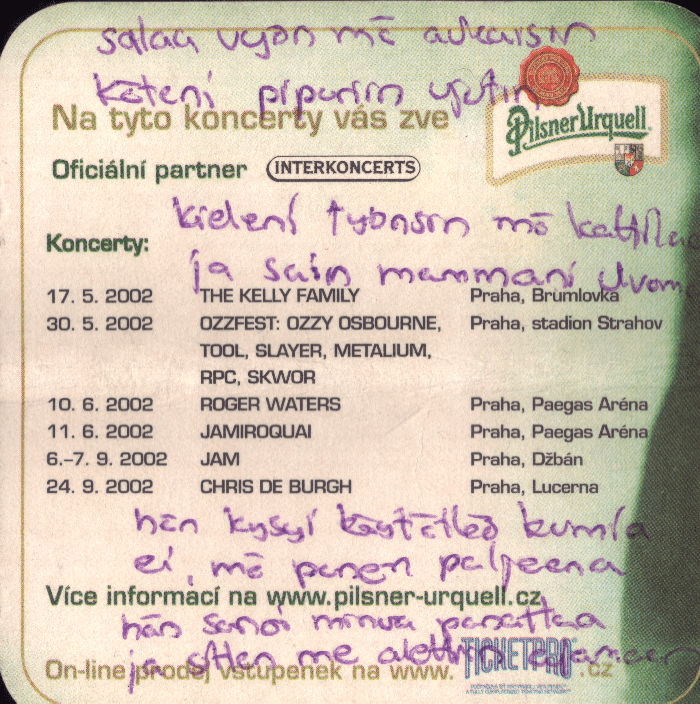 salaa vyön mä aukaisin
käteni pipariin ujutin
Na tyto koncerty vás zve
Pilsner Urquell
Oficiální partner INTERKONCERTS
kieleni työnsin mä
Koncerty:
ja sain mammani
17. 5. 2002 THE KELLY FAMILY Praha, Brumlovka
30. 5. 2002 OZZFEST: OZZY OSBOURNE, Praha, stadion Strahov
TOOL, SLAYER, METALIUM,
RPC, SKWOR
10. 6. 2002 ROGER WATERS Praha, Paegas Aréna
11. 6. 2002 JAMIROQUAI Praha, Paegas Aréna
6.–7. 9. 2002 JAM Praha, Džbán
24. 9. 2002 CHRIS DE BURGH Praha, Lucerna
hän kysyi kumia
ei, mä panen paljeena
Více informací na www.pilsner-urquell.cz
hän sanoi minua
ja sitten me alettiin
On-line prodej vstupenek na www. TICKETPRO .cz